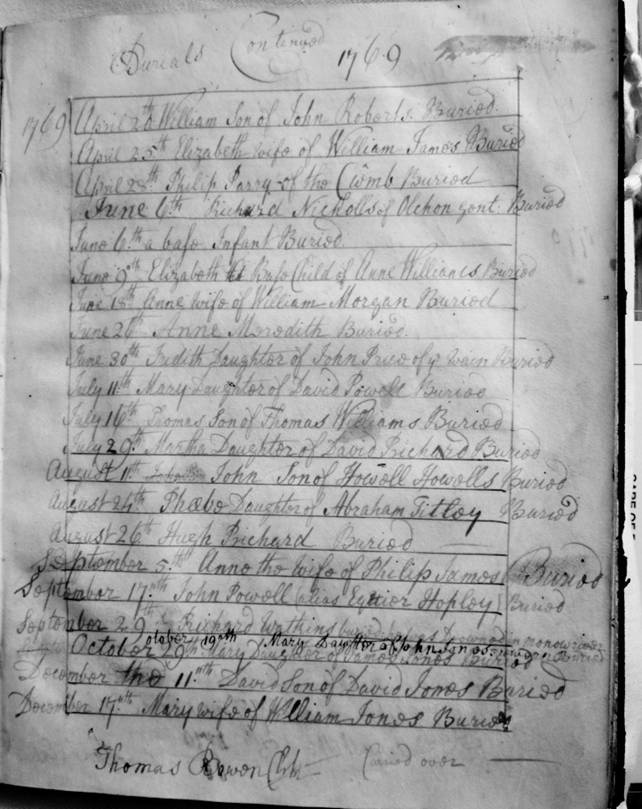 Burials Continued 1769
1769
April 20 William Son of John Roberts. Buried.
April 25th Elizabeth wife of William James Buried
April 28th Philip Parry of the Cwmb Buried
June 6th Richard Nicholls of Olchon gent: Buried
June 6th a base Infant Buried.
June 9th Elizabeth Base Child of Anne Williams Buried
June 18th Anne wife of William Morgan Buried
June 26th Anne Meredith Buried.
June 30th Judith Daughter of John Price of ye Wain Buried
July 11th Mary Daughter of David Powell Buried
July 16th Thomas Son of Thomas Williams Buried
July 29th Martha Daughter of David Richard Buried
August 1st John Son of Howell Howells Buried
August 24th Phœbe Daughter of Abraham Titley Buried
August 26th Hugh Richard Buried
September 5th Anne the wife of Philip James Buried
September 17nth John Powell alias Hopley Buried
September 29th Richard Watkins
October 19nth Mary Daughter of John Jones
October 29th Mary Daughter of James Jones Buried
December the 11nth David Son of David Jones Buried
December 17nth Mary wife of William Jones Buried
Thomas Clk Caried over